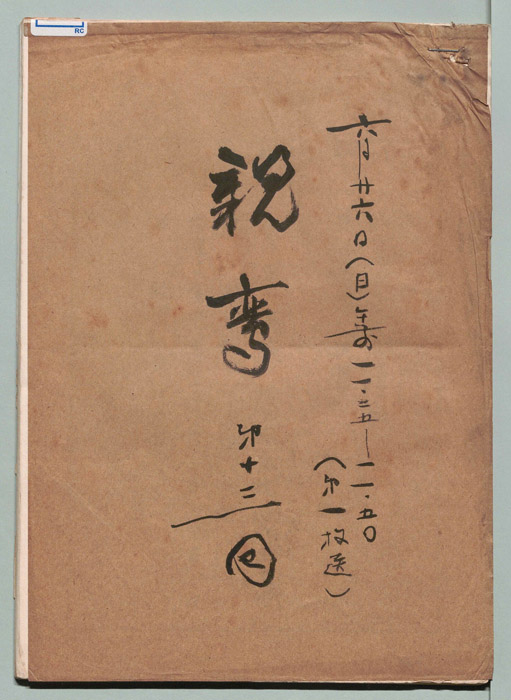 六月廿六日(日)午前一一・三五―一一・五〇
(第一放送)
親鸞
第十三回
RC